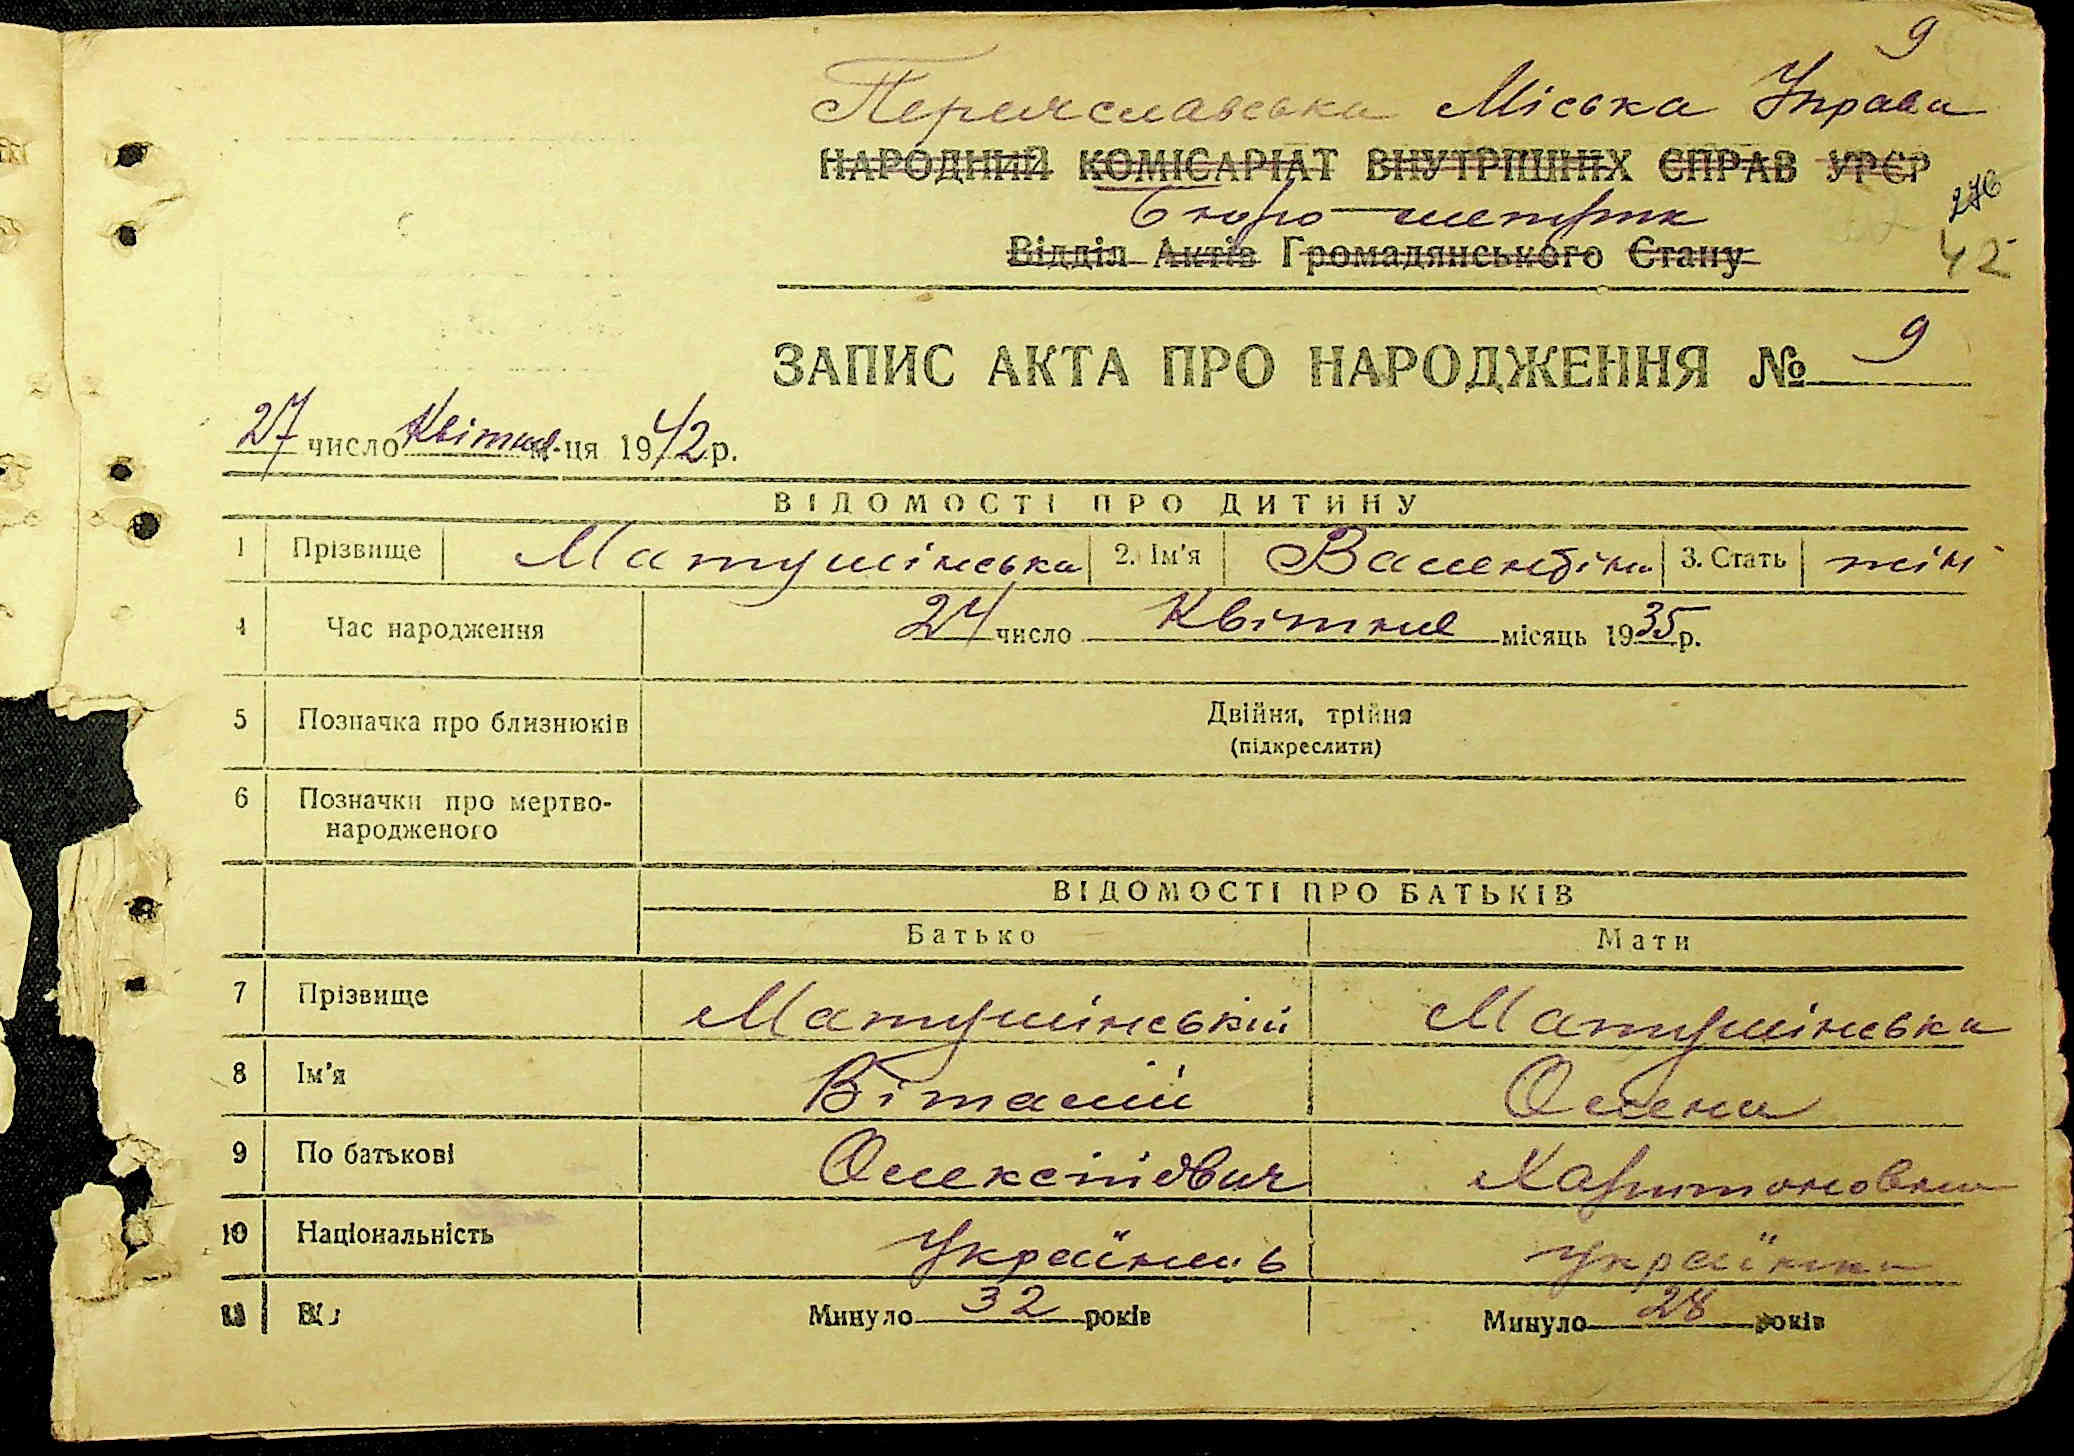 9
Переяславська Міська Управа
НАРОДНИЙ КОМІСАРІАТ ВНУТРІШНІХ СПРАВ УРСР
Бюро метрик
276
Відділ Актів Громадянського Стану
42
ЗАПИС АКТА ПРО НАРОДЖЕННЯ № 9
27 число Квітня м-ця 1942 р.
ВІДОМОСТІ ПРО ДИТИНУ
1 Прізвище Матушінська 2. Ім'я Валентіна 3. Стать жін
4 Час народження 24 число Квітня місяць 1935 р.
5 Позначка про близнюків Двійня, трійня
(підкреслити)
6 Позначки про мертво-
народженого
ВІДОМОСТІ ПРО БАТЬКІВ
Батько Мати
7 Прізвище Матушінський Матушінська
8 Ім'я Віталій Олена
9 По батькові Олексійович Харитоновна
10 Національність Українець Українка
11 Минуло 32 років Минуло 28 років